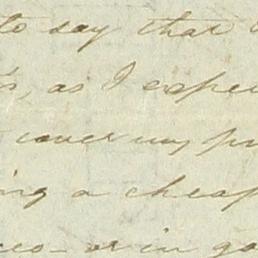 to say that
s, as I expe
cover my pr
ing a cheap
or in go